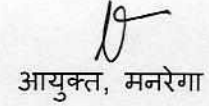 आयुक्त, मनरेगा